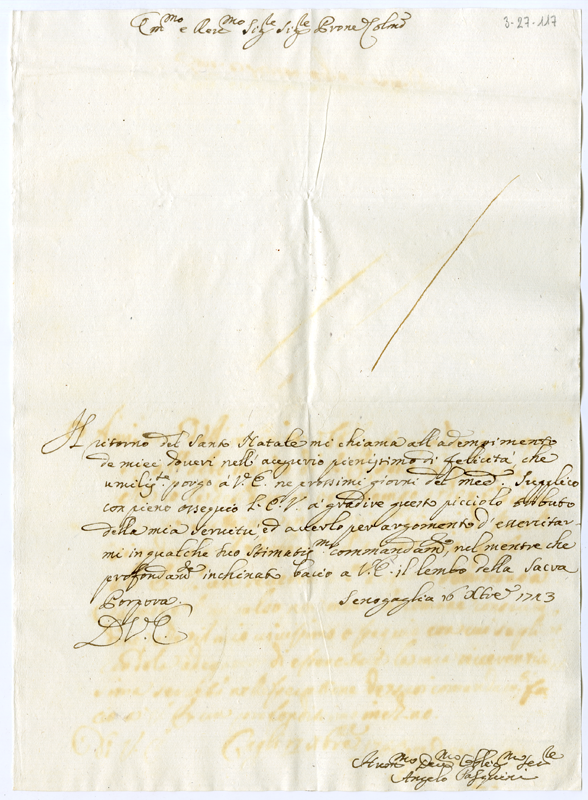 Em.mo e Rev.mo Sig.re Sig.re Prone Colmo
3-27-117
Il ritorno del Santo Natale mi chiama all'adempimento
de miei doveri nell'augurio pienissimo di felicità, che
umilm.te porgo a V.E. ne prossimi giorni del med.o Supplico
con pieno ossequio L'E.V. à gradire questo picciolo tributo
della mia servitù ed averlo per argomento d'essercitar-
mi in qualche suo stimatis.mo commandam.to, nel mentre che
profondam.te inchinato bacio a V.E. il lembo della Sacra
Porpora. Senegaglia 16 Xbre 1713
D V.E.
Angelo